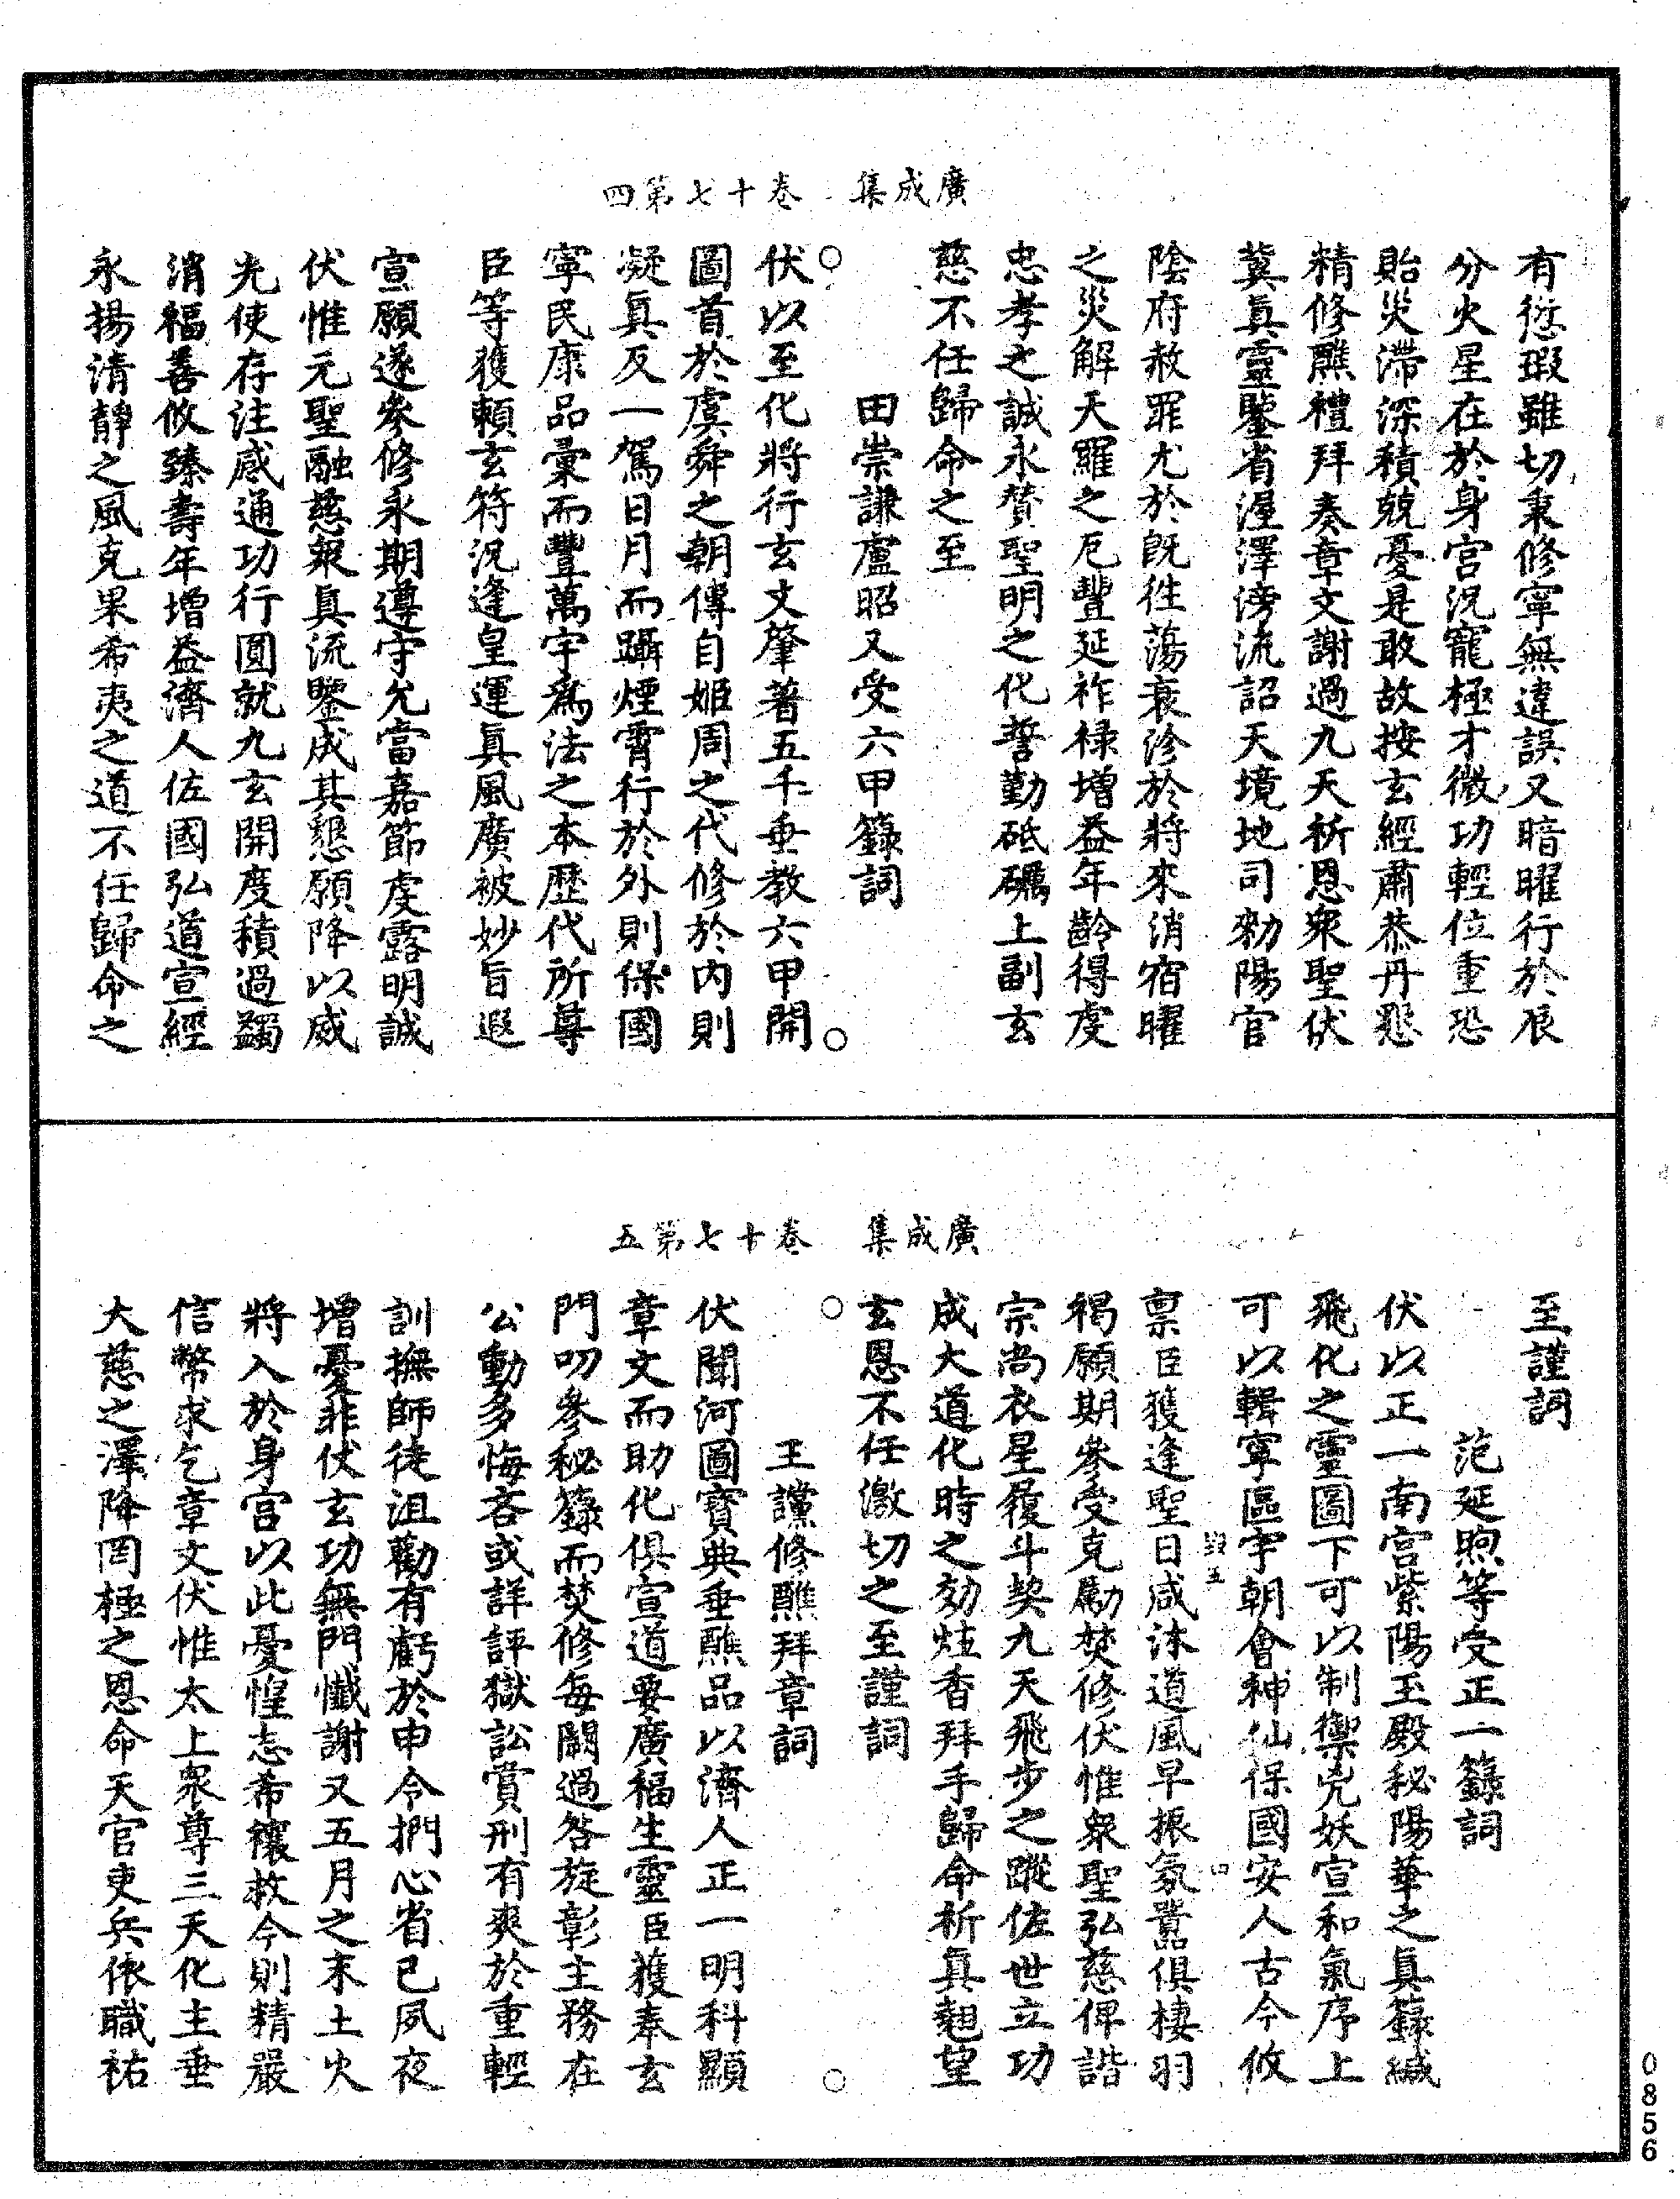 廣成集　卷十七第四
有愆瑕雖切秉修寧無違誤又暗曜行於辰
分火星在於身宮況寵極才微功輕位重恐
貽災滯深積兢憂是敢故按玄經肅恭丹懇
精修醮禮拜奏章文謝過九天祈恩眾聖伏
冀真靈鑒省渥澤滂流詔天境地司勑陽官
陰府赦罪尤於既往蕩衰沴於將來消宿曜
之災解天羅之厄豐延祚祿增益年齡得虔
忠孝之誠永贊聖明之化誓勤砥礪上副玄
慈不任歸命之至
田崇謙盧昭又受六甲籙詞
伏以至化將行玄文肇著五千垂教六甲開
圖首於虞舜之朝傳自姬周之代修於內則
凝真反一駕日月而躡煙霄行於外則保國
寧民康品彙而豐萬宇爲法之本歷代所尊
臣等獲賴玄符況逢皇運真風廣被妙旨遐
宣願遂參修永期遵守允當嘉節虔露明誠
伏惟元聖融慈眾真流鑒成其懇願降以威
光使存注感通功行圓就九玄開度積過蠲
消福善攸臻壽年增益濟人佐國弘道宣經
永揚清靜之風克果希夷之道不任歸命之
廣成集　卷十七第五
至謹詞
范延煦等受正一籙詞
伏以正一南宮紫陽玉殿秘陽華之真籙緘
飛化之靈圖下可以制禦兇妖宣和氣序上
可以輯寧區宇朝會神仙保國安人古今攸
禀臣獲逢聖日咸沐道風早振氛囂俱棲羽
褐願期參受克勵焚修伏惟眾聖弘慈俾諧
宗尚衣星履斗契九天飛步之蹤佐世立功
成大道化時之効炷香拜手歸命祈真翹望
玄恩不任激切之至謹詞
王讜修醮拜章詞
伏聞河圖寶典垂醮品以濟人正一明科顯
章文而助化俱宣道要廣福生靈臣獲奉玄
門叨參秘籙而焚修每闕過咎旋彰主務在
公動多悔吝或詳評獄訟賞刑有爽於重輕
訓撫師徒沮勸有虧於申令捫心省已夙夜
增憂非伏玄功無門懺謝又五月之末土火
將入於身宮以此憂惶志希禳救今則精嚴
信幣求乞章文伏惟太上眾尊三天化主垂
大慈之澤降罔極之恩命天官吏兵依職祐
0856